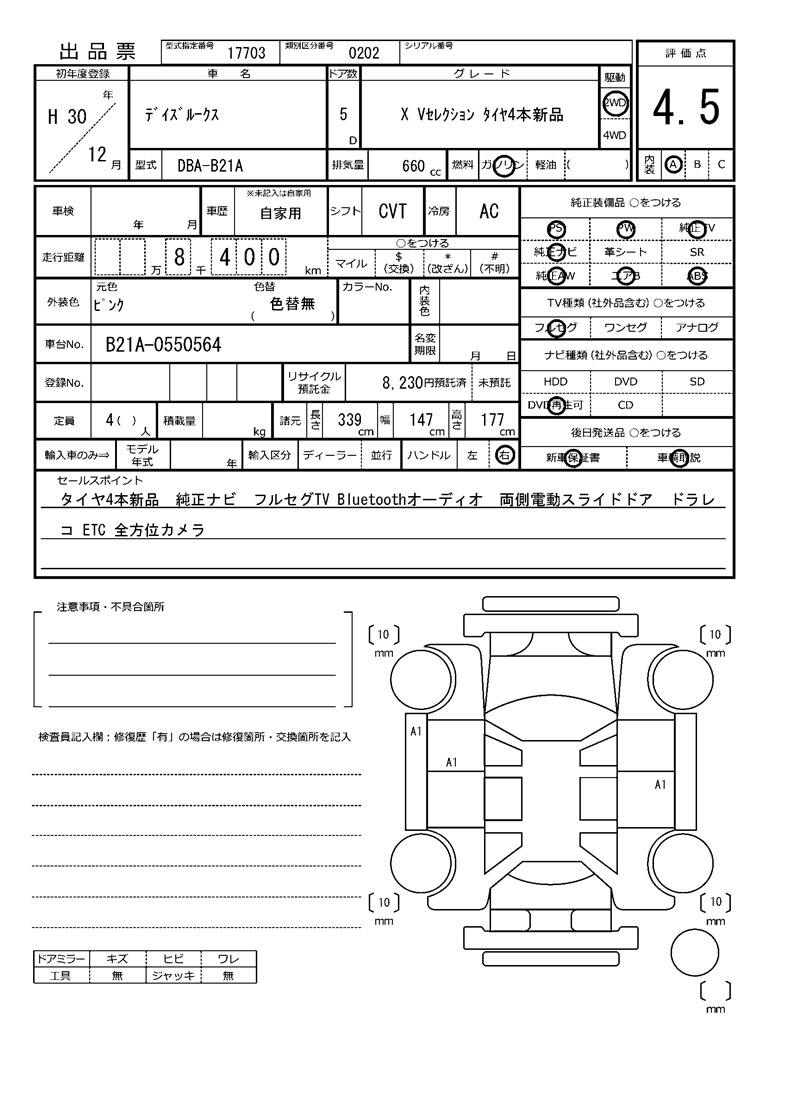 出品票 型式指定番号 17703 類別区分番号 0202 シリアル番号
初年度登録 車名 ドア数 グレード 駆動 評価点
H 30 年 12 月 ﾃﾞｲｽﾞﾙｰｸｽ 5 D X Vｾﾚｸｼｮﾝ ﾀｲﾔ4本新品 2WD 4WD 4.5
型式 DBA-B21A 排気量 660 cc 燃料 ガソリン 軽油 ( ) 内装 A B C
車検 年 月 車歴 ※未記入は自家用 自家用 シフト CVT 冷房 AC
走行距離 万 8 千 4 0 0 km ○をつける
マイル $ (交換) * (改ざん) # (不明)
外装色 元色 ﾋﾟﾝｸ 色替 ( 色替無 ) カラーNo. 内装色
車台No. B21A-0550564 名変期限 月 日
登録No. リサイクル預託金 8,230円預託済 未預託
定員 4 ( ) 人 積載量 kg 諸元 長さ 339 cm 幅 147 cm 高さ 177 cm
輸入車のみ⇒ モデル年式 年 輸入区分 ディーラー 並行 ハンドル 左 右
純正装備品 ○をつける
PS PW 純正TV
純正ナビ 革シート SR
純正AW エアB ABS
TV種類 (社外品含む) ○をつける
フルセグ ワンセグ アナログ
ナビ種類 (社外品含む) ○をつける
HDD DVD SD
DVD再生可 CD
後日発送品 ○をつける
新車保証書 車輌取説
セールスポイント
タイヤ4本新品 純正ナビ フルセグTV Bluetoothオーディオ 両側電動スライドドア ドラレ
コ ETC 全方位カメラ
注意事項・不具合箇所
検査員記入欄：修復歴「有」の場合は修復箇所・交換箇所を記入
ドアミラー キズ ヒビ ワレ
工具 無 ジャッキ 無
〔 10 〕 mm 〔 10 〕 mm
A1
A1
A1
〔 10 〕 mm 〔 10 〕 mm
〔 〕 mm